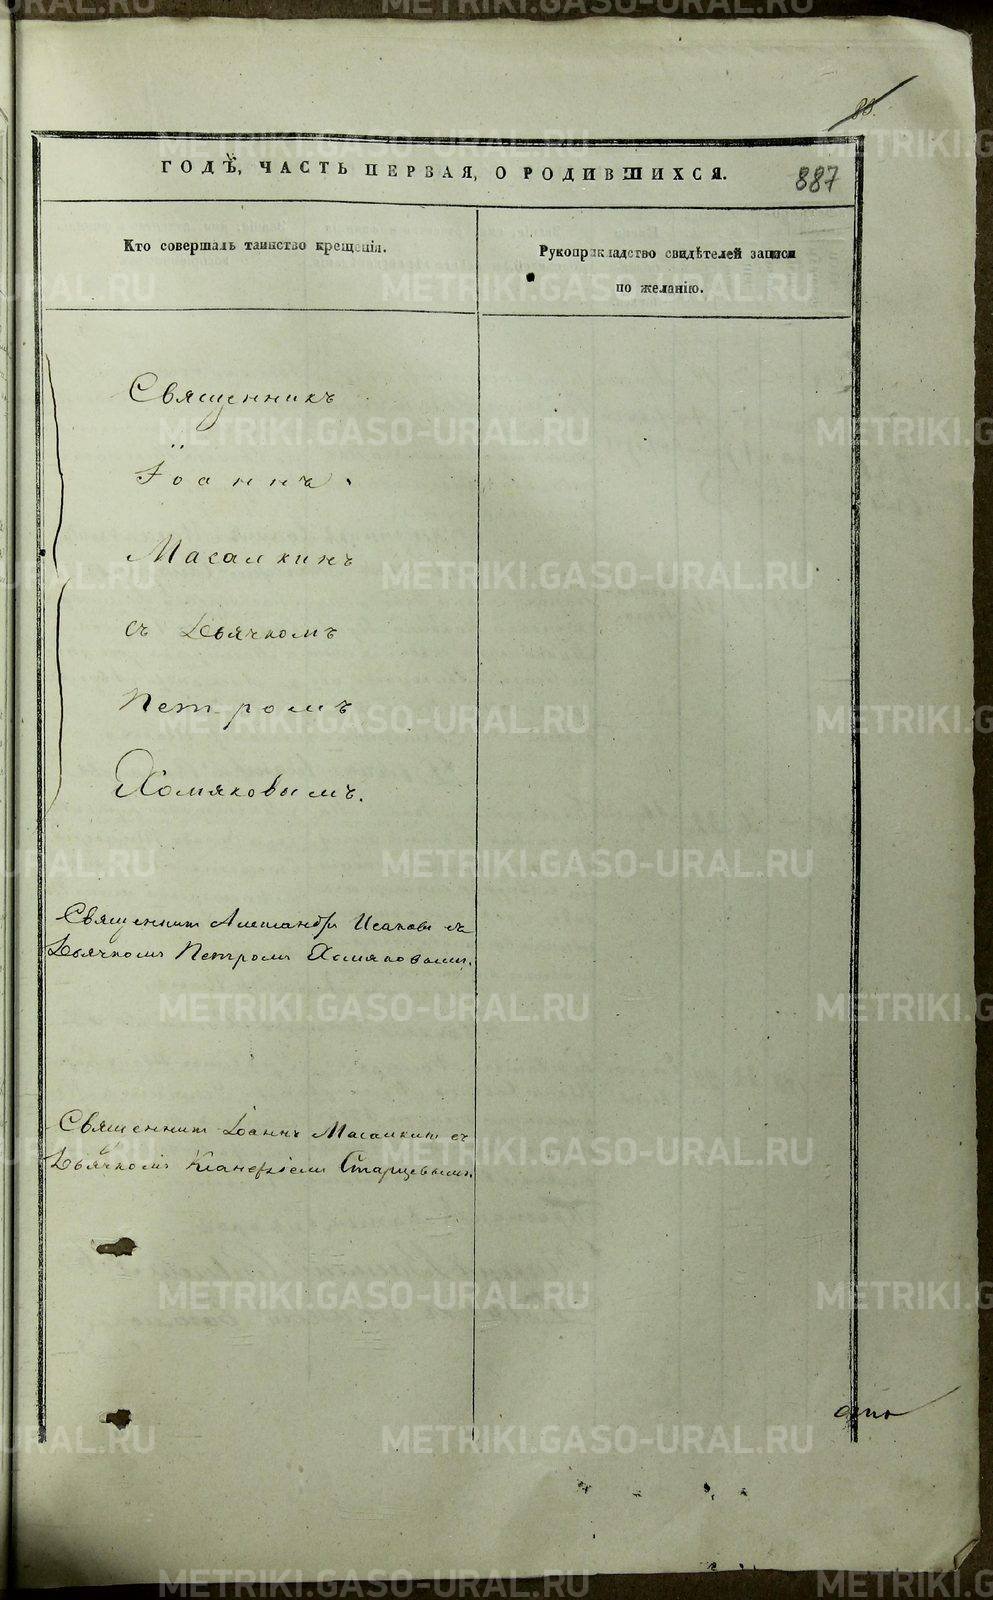 88.
ГОДѢ, ЧАСТЬ ПЕРВАЯ, О РОДИВШИХСЯ.
887
Кто совершалъ таинство крещенія.
Рукоприкладство свидѣтелей записи
по желанію.
Священникъ
Іоаннъ
Масалкинъ
съ Дьячкомъ
Петромъ
Хомяковымъ.
Священникъ Александръ Исаковъ съ
Дьячкомъ Петромъ Хомяковымъ.
Священникъ Іоаннъ Масалкинъ съ
Дьячкомъ Старцевымъ.
METRIKI.GASO-URAL.RU